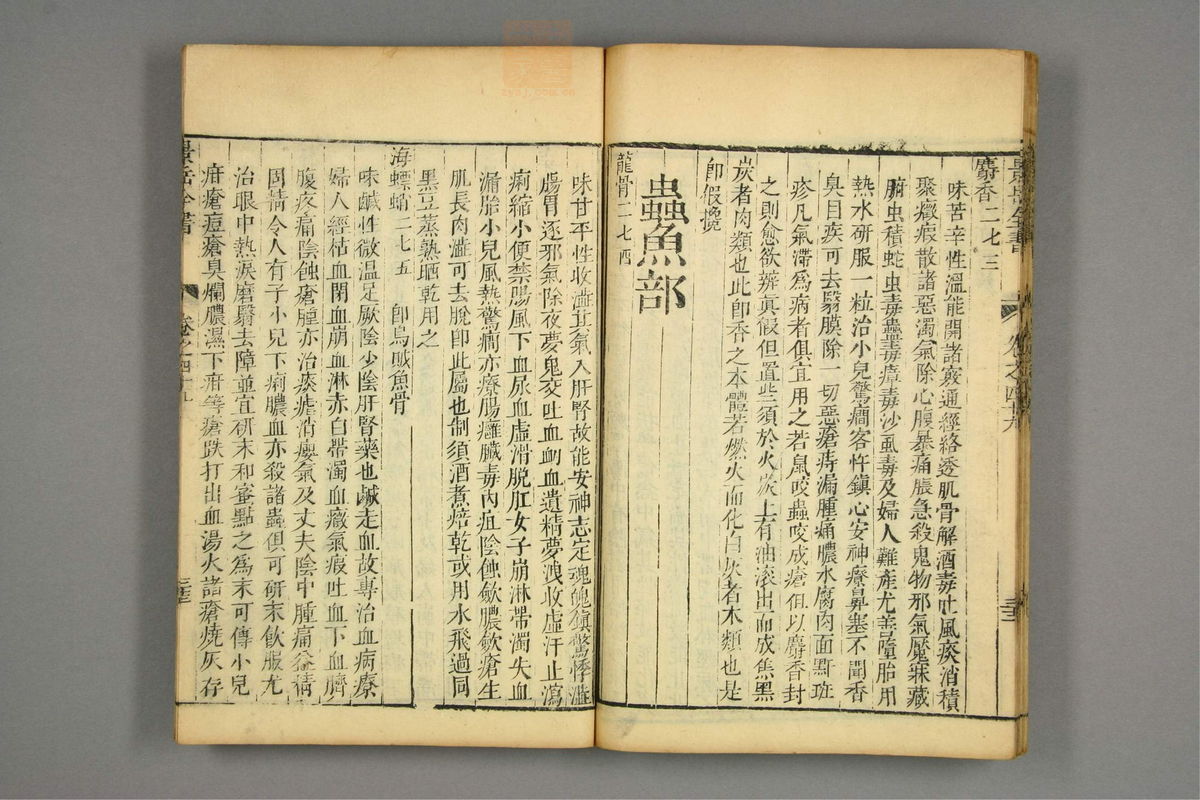 麝香二七三
味苦辛性溫能開諸竅通經絡透肌骨解酒毒吐風痰消積
聚癥瘕散諸惡濁氣除心腹暴痛脹急殺鬼物邪氣魘寐藏
腑虫積蛇虫毒蠱毒瘴毒沙虱毒及婦人難產尤善墮胎用
熱水研服一粒治小兒驚癎客忤鎮心安神療鼻塞不聞香
臭目疾可去翳膜除一切惡瘡痔漏腫痛膿水腐肉面䵟斑
疹凡氣滯為病者俱宜用之若鼠咬蟲咬成瘡但以麝香封
之則愈欲辨真假但置些須於火炭上有油滾出而成焦黑
炭者肉類也此即香之本體若燃火而化白灰者木類也是
即假攙
蟲魚部
龍骨二七四
味甘平性收澁其氣入肝腎故能安神志定魂魄鎮驚悸澁
腸胃逐邪氣除夜夢鬼交吐血衂血遺精夢洩收虛汗止瀉
痢縮小便禁腸風下血尿血虛滑脫肛女子崩淋帶濁失血
漏胎小兒風熱驚癎亦療腸癰臟毒內疽陰蝕歛膿歛瘡生
肌長肉澁可去脫即此屬也制須酒煮焙乾或用水飛過同
黑豆蒸熟晒乾用之
海螵蛸二七五 即烏賊魚骨
味鹹性微溫足厥陰少陰肝腎藥也鹹走血故專治血病療
婦人經枯血閉血崩血淋赤白帶濁血癥氣瘕吐血下血臍
腹疼痛陰蝕瘡腫亦治痰瘧消癭氣及丈夫陰中腫痛益精
固精令人有子小兒下痢膿血亦殺諸蟲俱可研末飲服尤
治眼中熱淚磨翳去障並宜研末和蜜點之為末可傅小兒
疳瘡痘瘡臭爛膿濕下疳等瘡跌打出血湯火諸瘡燒灰存
景岳全書 卷之四十九